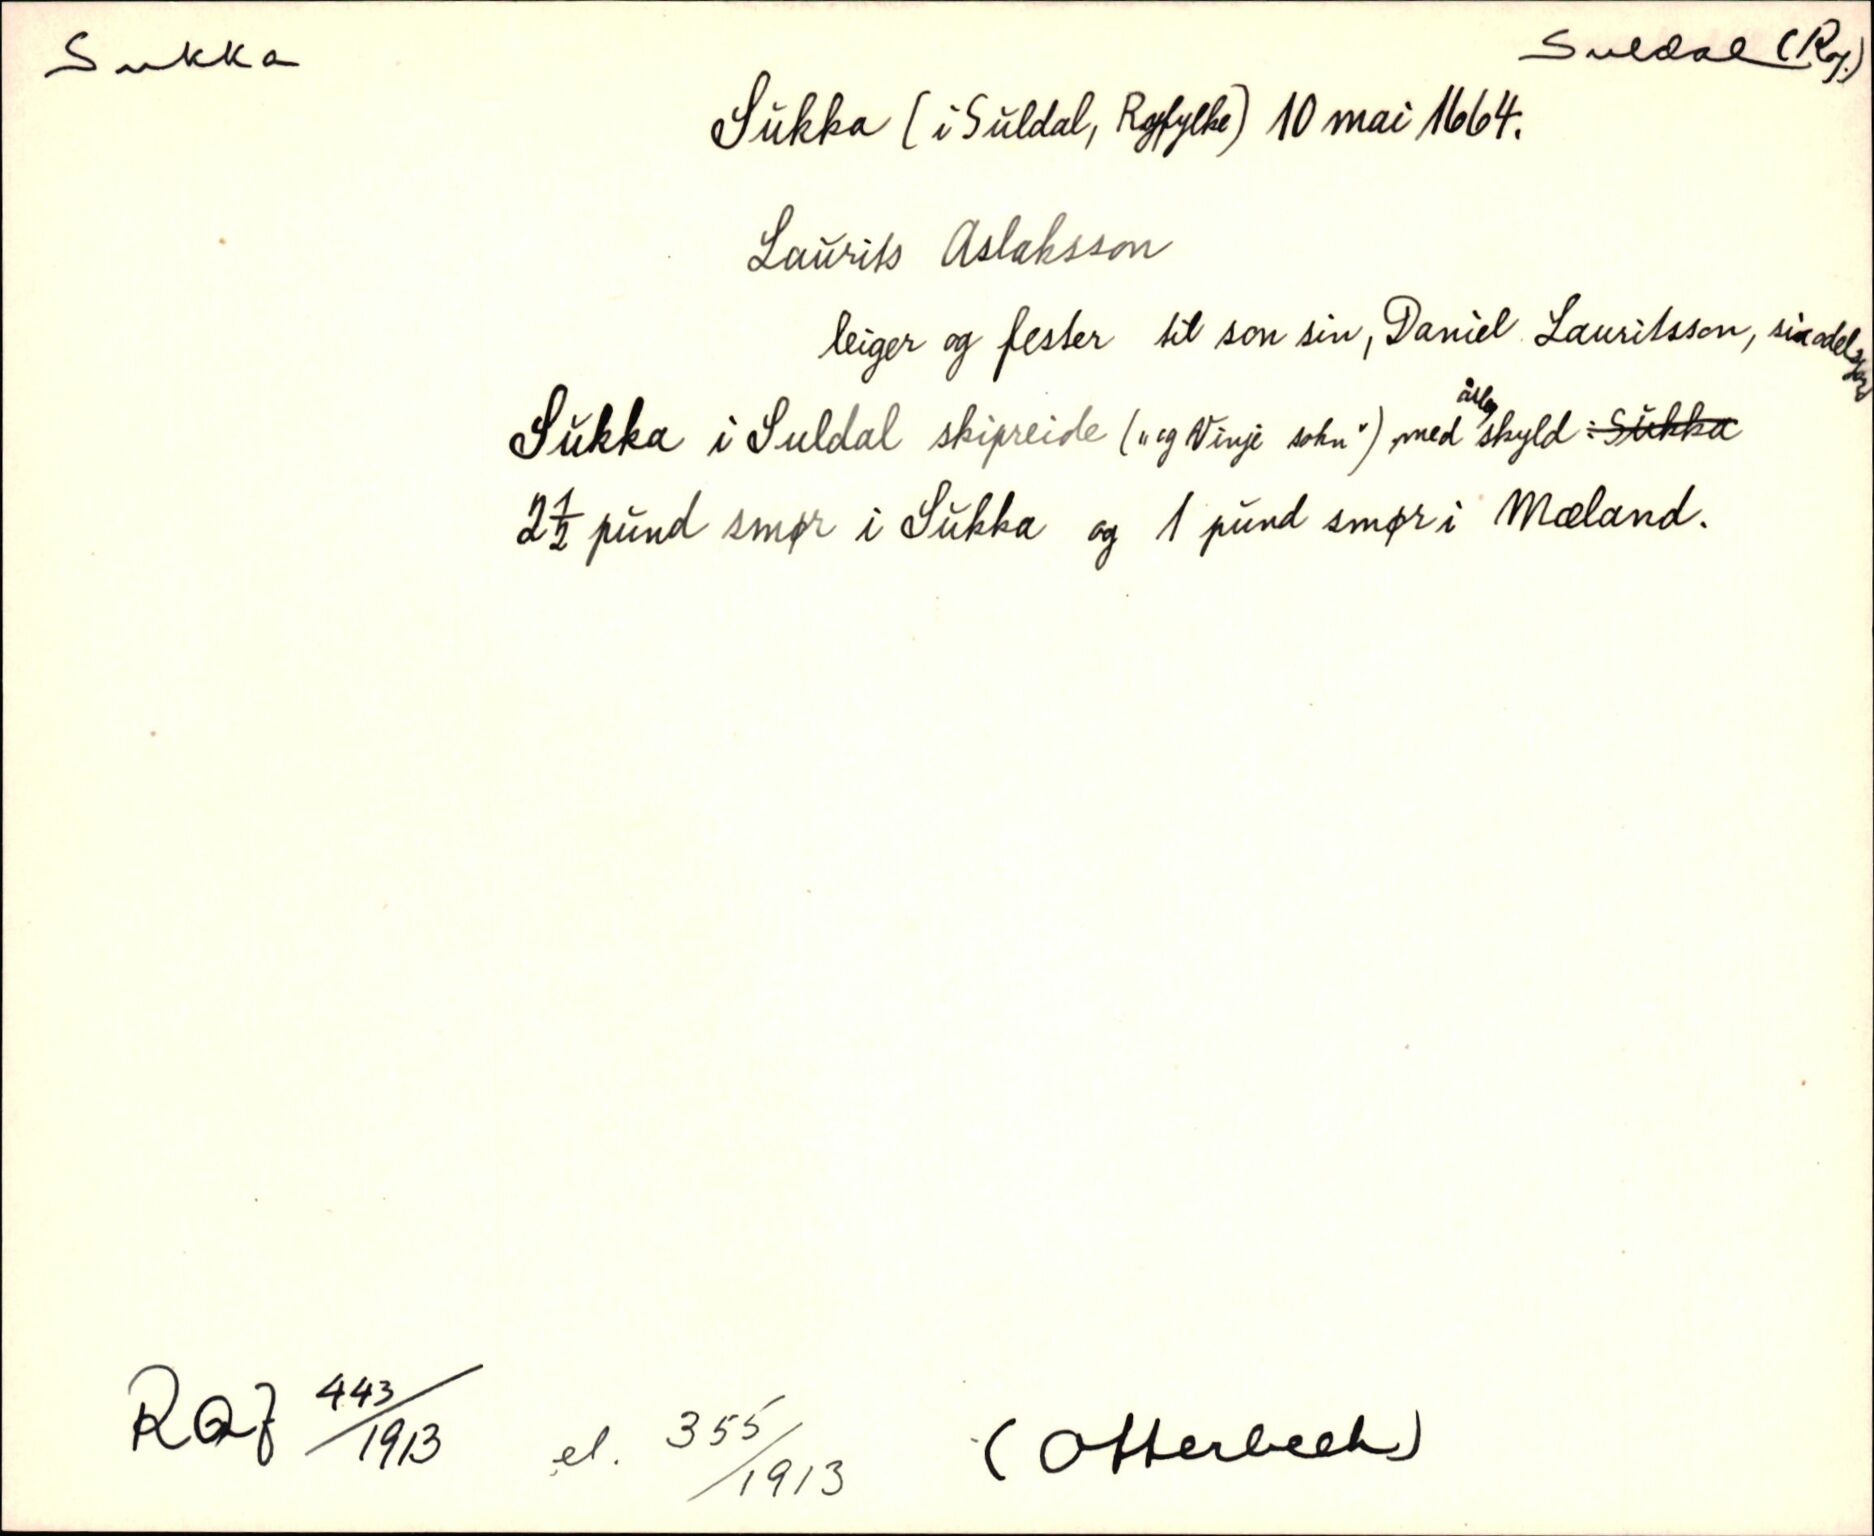 Sukka
Suldal (Rog.)
Sukka (i Suldal, Rogfylke) 10 mai 1664.
Laurits Aslaksson
leiger og fester til son sin, Daniel Lauritsson, sin odelsjord
Sukka i Suldal skipreide („og Vinje sokn“), med årleg skyld : Sukka
2 1/2 pund smør i Sukka og 1 pund smør i Mæland.
443/1913 el. 355/1913 (Otterbech)